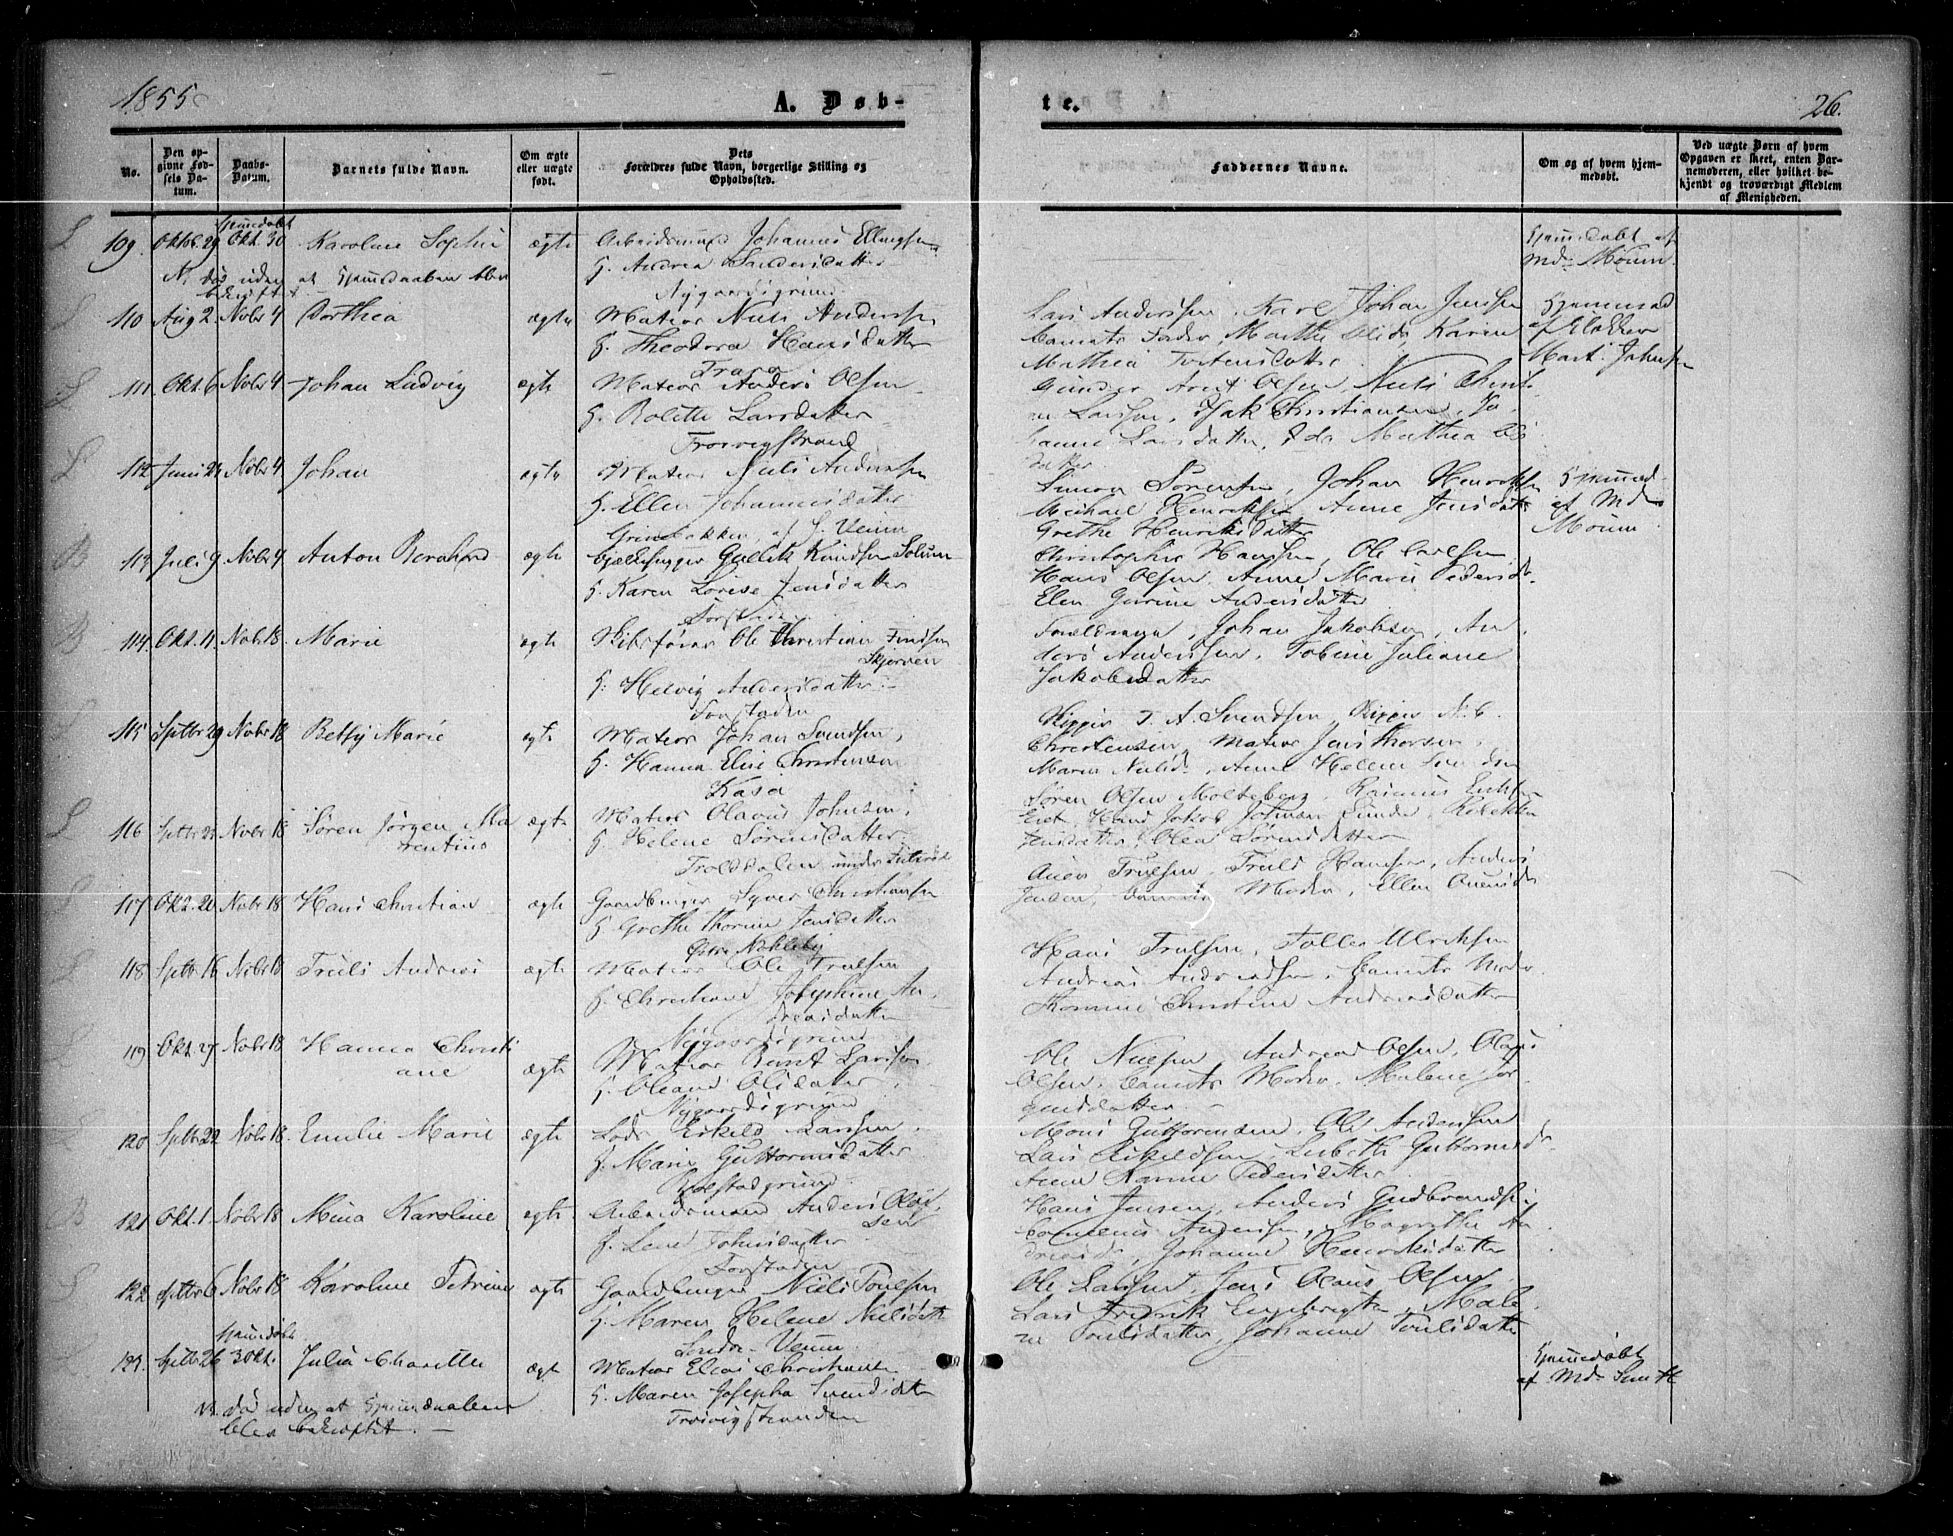 1855
A. Døb-
te.
26.
No.
Den op-
givne Fød-
sels Da-
tum.
Daabs-
Datum.
Barnets fulde Navn.
Om ægte
eller uægte
født.
Dets
Forældres fulde Navn, borgerlige Stilling og
Opholdssted.
Faddernes Navne.
Om og af hvem hjem-
medøbt.
Ved uægte Børn af hvem
Opgaven er skeet, enten Bar-
nemoderen, eller hvilket be-
kjendt og troværdigt Medlem
af Menigheden.
L 109. Oktob. 29 Hjemmedøbt Okt. 30 Karoline Sophie ægte Arbeidsmand Johannes Ellingsen
H. Andrea Landersdatter
Nygaardsgrund
N. død uden at Hjemdaaben blev
bekræftet
Hjemmedøbt af
Md. Mourn
L 110 Aug 2. Nobr 4 Dorthea ægte Matros Niels Anderssen
H. Theodora Hansdatter
Trara
Lars Anderssen, Karl Johan Jenssen
Barnets Fader, Marthe Olsd. Karen
Mathea Torstensdatter
Hjemmed.
af Klokker
Mart. Johnsen
L 111. Okt. 6 Nobr 4 Johan Ludvig ægte Matros Anders Olsen
H. Bolette Larsdatter
Trosvigstrand
Gunder Arnt Olsen, Niels Christi
an Larssen, Isak Christiansen, Jo
hanne Larsdatter, Ida Mathea Ols
datter
L 112 Juni 24 Nobr 4 Johan ægte Matros Niels Anderssen
H. Ellen Johannesdatter
Grindbakken, af S. Veum
Simon Sørensen, Johan Henriksen
Michael Henriksen, Anne Jensdatter
Grethe Henriksdatter
Hjemmed
af Md.
Mourn
B 113 Juli 9 Nobr 4 Anton Bernhard ægte Gullik Knudsen Solum
H. Karen Lovise Jensdatter
Forstaden
Christopher Hanssen, Ole Carlsen
Hans Olsen, Anne Marie Pedersd.
Elen Gurine Andersdatter
B 114 Okt. 11. Nobr. 18. Marie ægte Skibsfører Ole Christian Findsen
Skjørven
H. Helvig Andersdatter
Forstaden
Forældrene, Johan Jakobsen, An
ders Anderssen, Tobine Juliane
Jakobsdatter
115 Septbr 29 Nobr 18 Betsy Marie ægte Matros Johan Svendsen,
H. Hanna Elise Christensen
Kasa
Skipper T. A. Svendsen, Skipper N. C.
Christensen, Matros Jens Thorsen,
Maren Nielsd., Anne Helene
L 116 Septbr Nobr 18 Søren Jørgen
rentius ægte Matros Olavus Johnsen,
H. Helene Sørensdatter
Troldalen under
Søren Olsen Molteberg, Rasmus
Hans Jakob Johnsen
Jensdatter, Olea Sørensdatter
L 117 Okt. 20 Nobr 18 Hans Christian ægte Gaardbruger Syver Christiansen
H. Grethe Thorine Jensdatter
Østre Nøkleby
Truelsen, Truls Hanssen, Anders
Jensen, Barnets Moder, Ellen
118 Septbr 16 Nobr 18 Truls Andreas ægte Matros Ole Truelsen
H. Christiane Josephine An
dreasdatter
Nygaardsgrund
Hans Truelsen, Tolles Ulriksen
Andreas Andreassen, Barnets Moder
Thomine Christine Andreasdatter
119 Okt. 27 Nobr 18 Hanna Christi
ane ægte Matros Bernt Larssen
H. Oleane Olsdatter
Nygaardsgrund
Ole Nielsen, Andreas Olsen, Olaus
Olsen, Barnets Moder, Malene Jør
gensdatter
120 Septbr 22 Nobr 18. Emilie Marie ægte Lods Eskild Larssen
H. Marie Guttormsdatter
Rolstadgrund
Mons Guttormsen, Ole Anderssen
Lars Eskildsen, Lisbeth Guttormsd.
Anne Karine Pedersdatter
B 121 Okt. 1 Nobr 18 Mina Karoline ægte Arbeidsmand Anders Olaf
sen
H. Lene Johnsdatter
Forstaden
Hans Jensen, Anders Gudbrandsen
Cornelius Anderssen, Magrethe An
dreasd., Johanne Henriksdatter
122 Septbr 6 Nobr 18 Karoline Petrine ægte Gaardbruger Niels Poulsen
H. Maren Helene Nielsdatter
Søndre Veum
Ole Larssen, Jens Olaus Olsen
Lars Fredrik Engebrigtsen, Male
ne Poulsdatter, Johanne Poulsdatter
123. Septbr 26 Hjemmedøbt 30 Okt. Julia Charlotte ægte Matros Elias Christiansen
H. Maren Josepha Svendsdatter
Trosvigstranden
N. død uden at Hjemmedaaben
blev bekræftet.
Hjemmedøbt
af Md. Smith